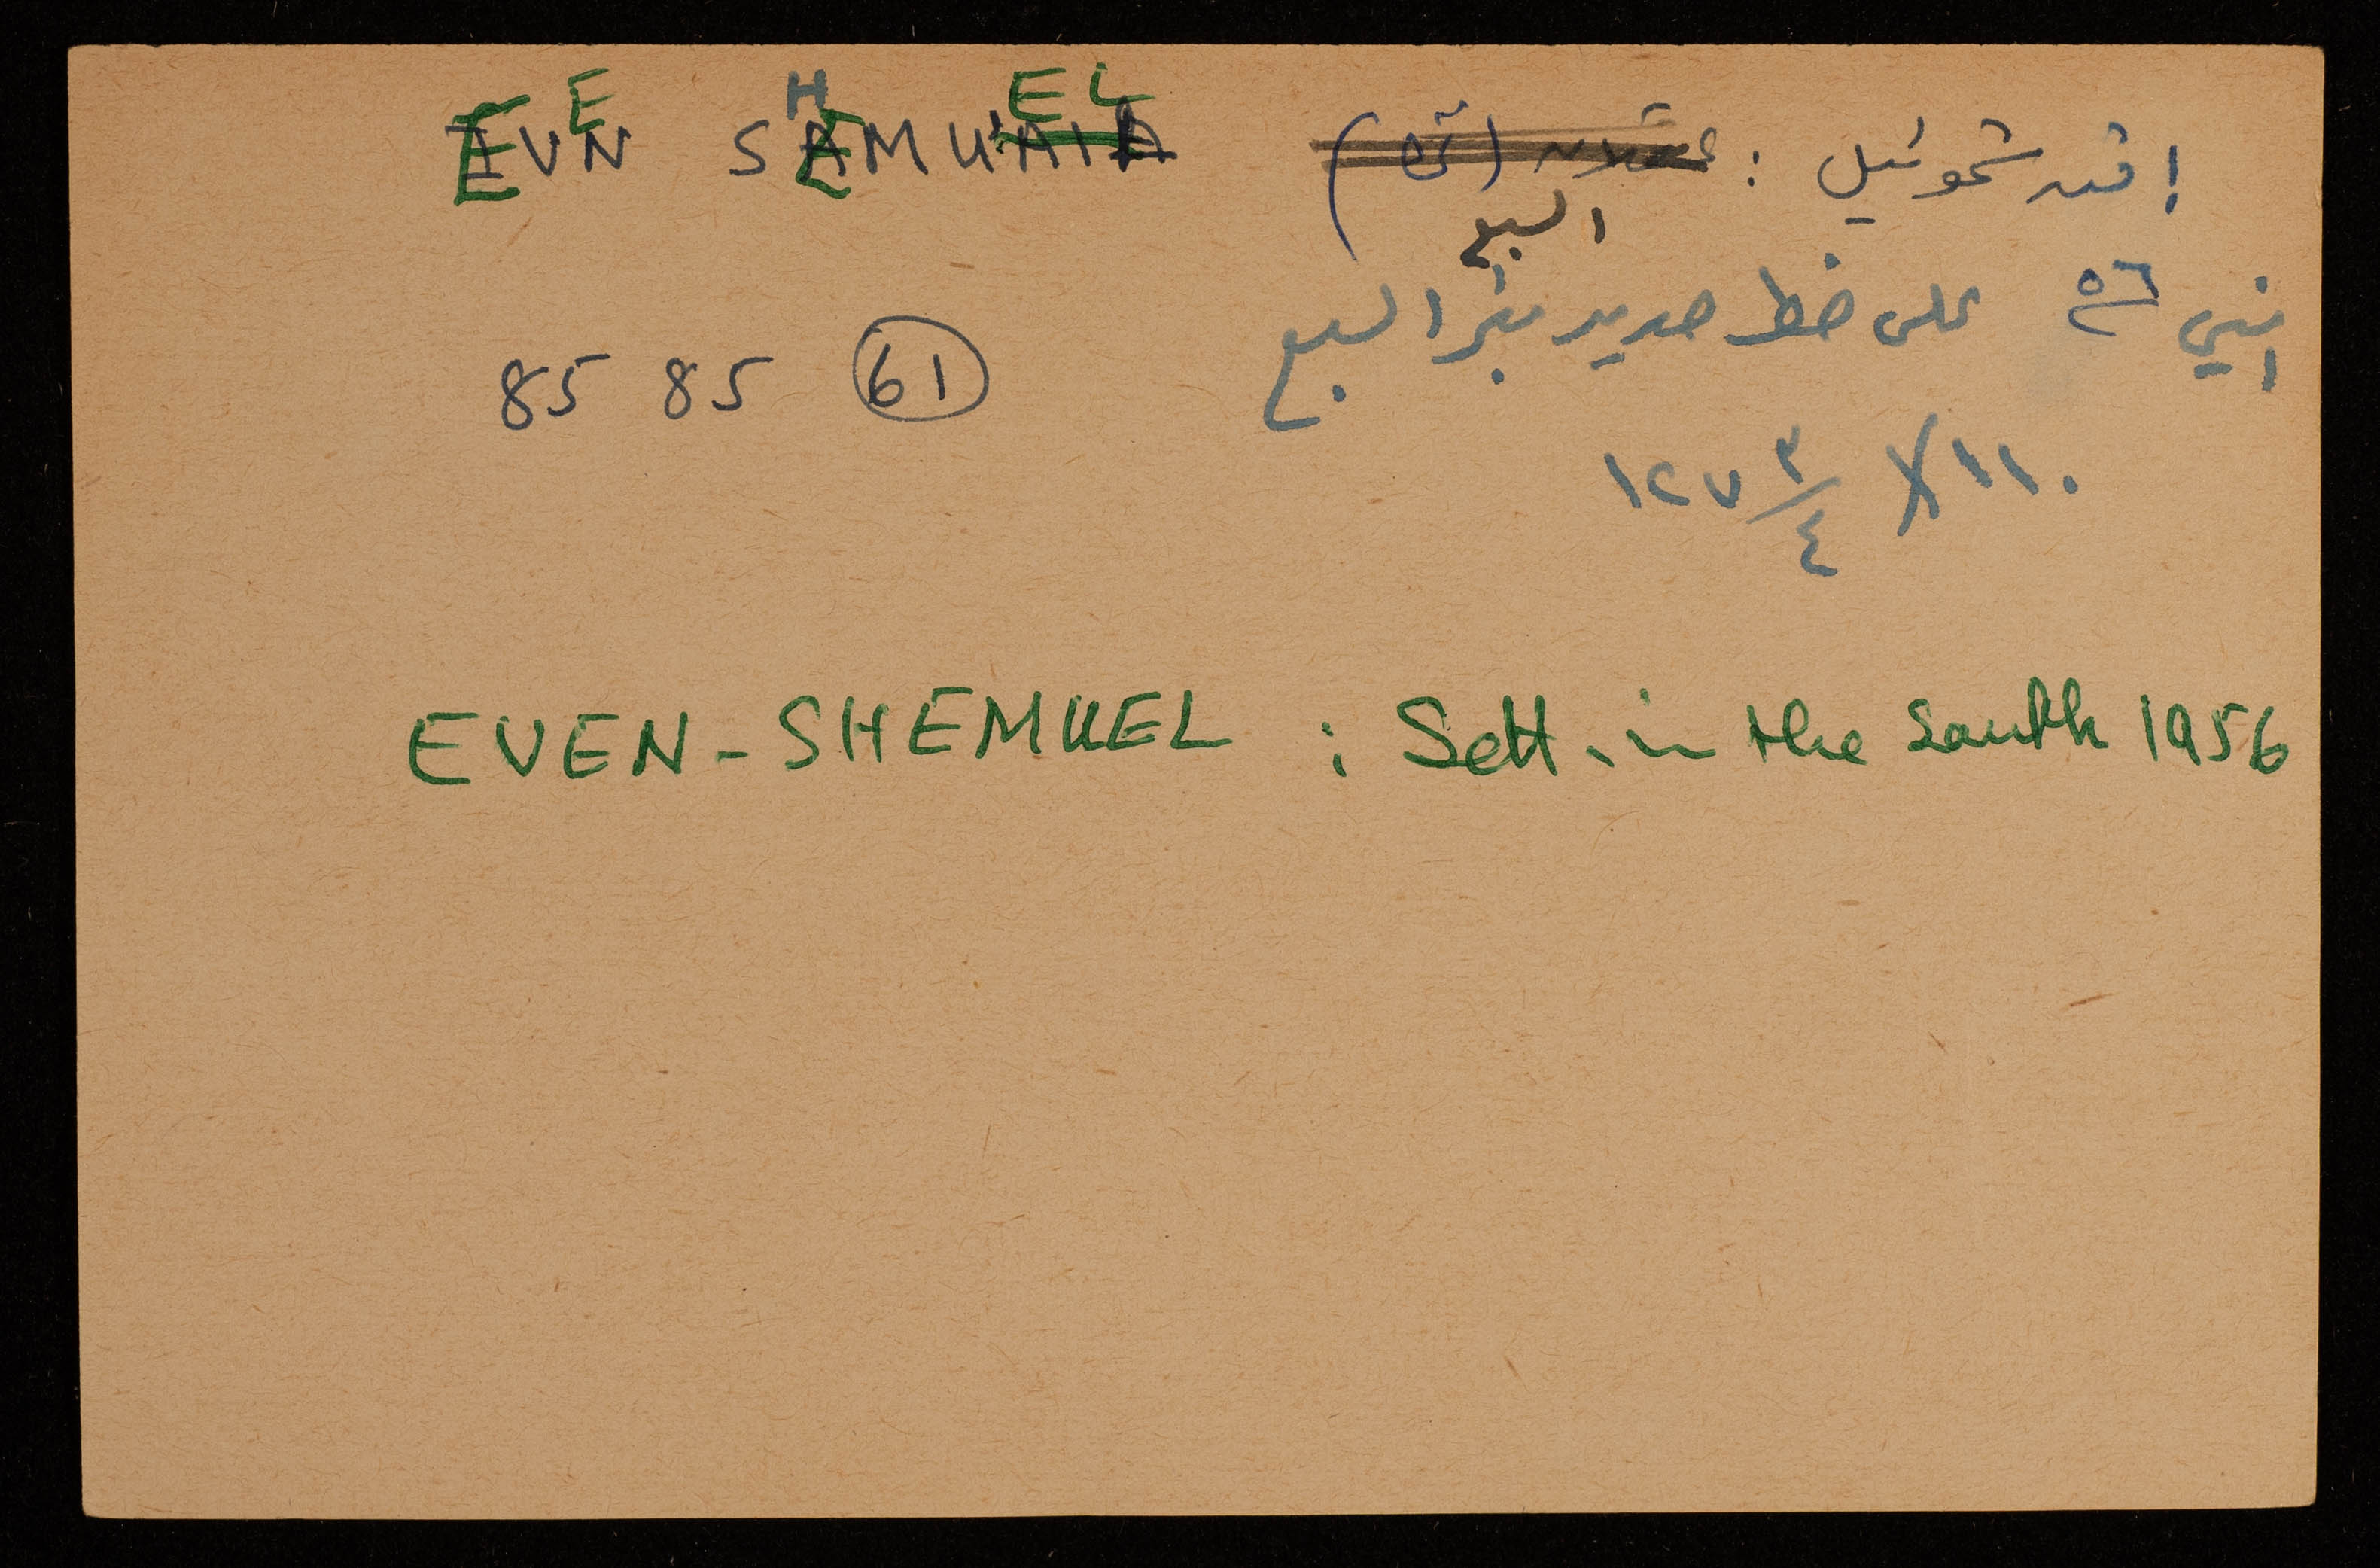 EVEN SHEMUEL
إفن شموئيل : عسقلان (قرية)
السبع
انشئ ٥٦ على خط حديد بئر السبع
85 85 61
١٢٧ ٣/٤ X ١١٠
EVEN-SHEMUEL : Sett. in the South 1956